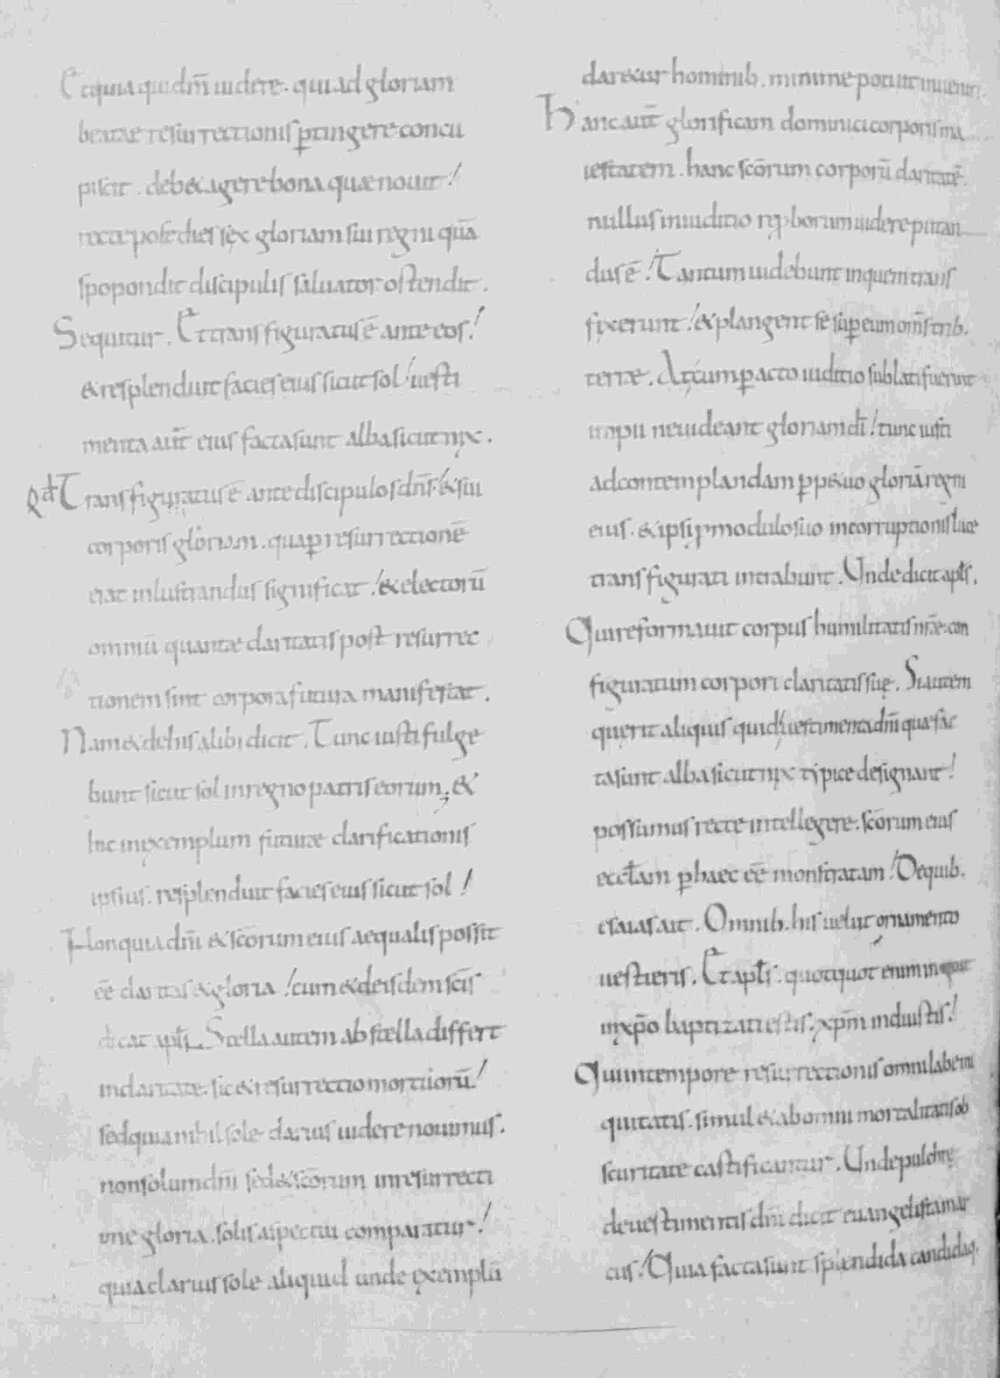 Et quia qui dnm̄ uidere. qui ad gloriam
beatae resurrectionis ꝑtingere concu
piscit. debet agere bona quae nouit!
recte post dies sex gloriam sui regni quā
spopondit discipulis saluator ostendit.
Sequitur. Et transfiguratus ē ante eos!
& resplenduit facies eius sicut sol! uesti
menta aut̄ eius facta sunt alba sicut nix.
qd Transfiguratus ē ante discipulos dn̄s! & sui
corporis gloriam. qua ꝑ resurrectionē
erat inlustrandus significat! & electorū
omniū quantae claritatis post resurrec
tionem sint corpora futura manifestat.
Nam & de his alibi dicit. Tunc iusti fulge
bunt sicut sol in regno patris eorum; &
hic in exemplum futurae clarificationis
ipsius. resplenduit facies eius sicut sol!
Non quia dn̄i & scōrum eius aequalis possit
eē claritas & gloria! cum & de isdem scīs
dicat apl̄s. Stella autem ab stella differt
in claritate. sic & resurrectio mortuorū!
sed quia nihil sole clarius uidere nouimus.
non solum dn̄i sed & scōrum in resurrecti
one gloria. solis aspectui comparatur!
quia clarius sole aliquid unde exemplū
daretur hominib. minime potuit inueniri
Hanc aut̄ glorificam dominici corporis ma
iestatem. hanc scōrum corporū claritatē
nullus in iuditio reproborum uidere putan
dus ē! Tantum uidebunt in quem trans
fixerunt! & plangent se suꝑ eum om̄s trib.
terrae. At cum ꝑacto iuditio sublati fuerint
impii ne uideant gloriam dī! tunc iusti
ad contemplandam ꝑpetuo gloriā regni
eius. & ipsi ꝓ modulo suo incorruptionis luce
transfigurati intrabunt. Unde dicit apl̄s.
Qui reformauit corpus humilitatis nr̄ae con
figuratum corpori claritatis suę. Si autem
querit aliquis quid uestimenta dn̄i quae fac
ta sunt alba sicut nix typice designant!
possumus recte intellegere. scōrum eius
eccl̄am ꝑ haec eē monstratam! De quib.
esaias ait. Omnib. his uelut ornamento
uestieris. Et apl̄s. quotquot enim
in xp̄o baptizati estis; xp̄m induistis!
Qui in tempore resurrectionis omni labe ini
quitatis. simul & ab omni mortalitatis ob
scuritate castificantur. Unde pulchre
de uestimentis dn̄i dicit euangelista mar
cus! Quia facta sunt splendida candidaq;